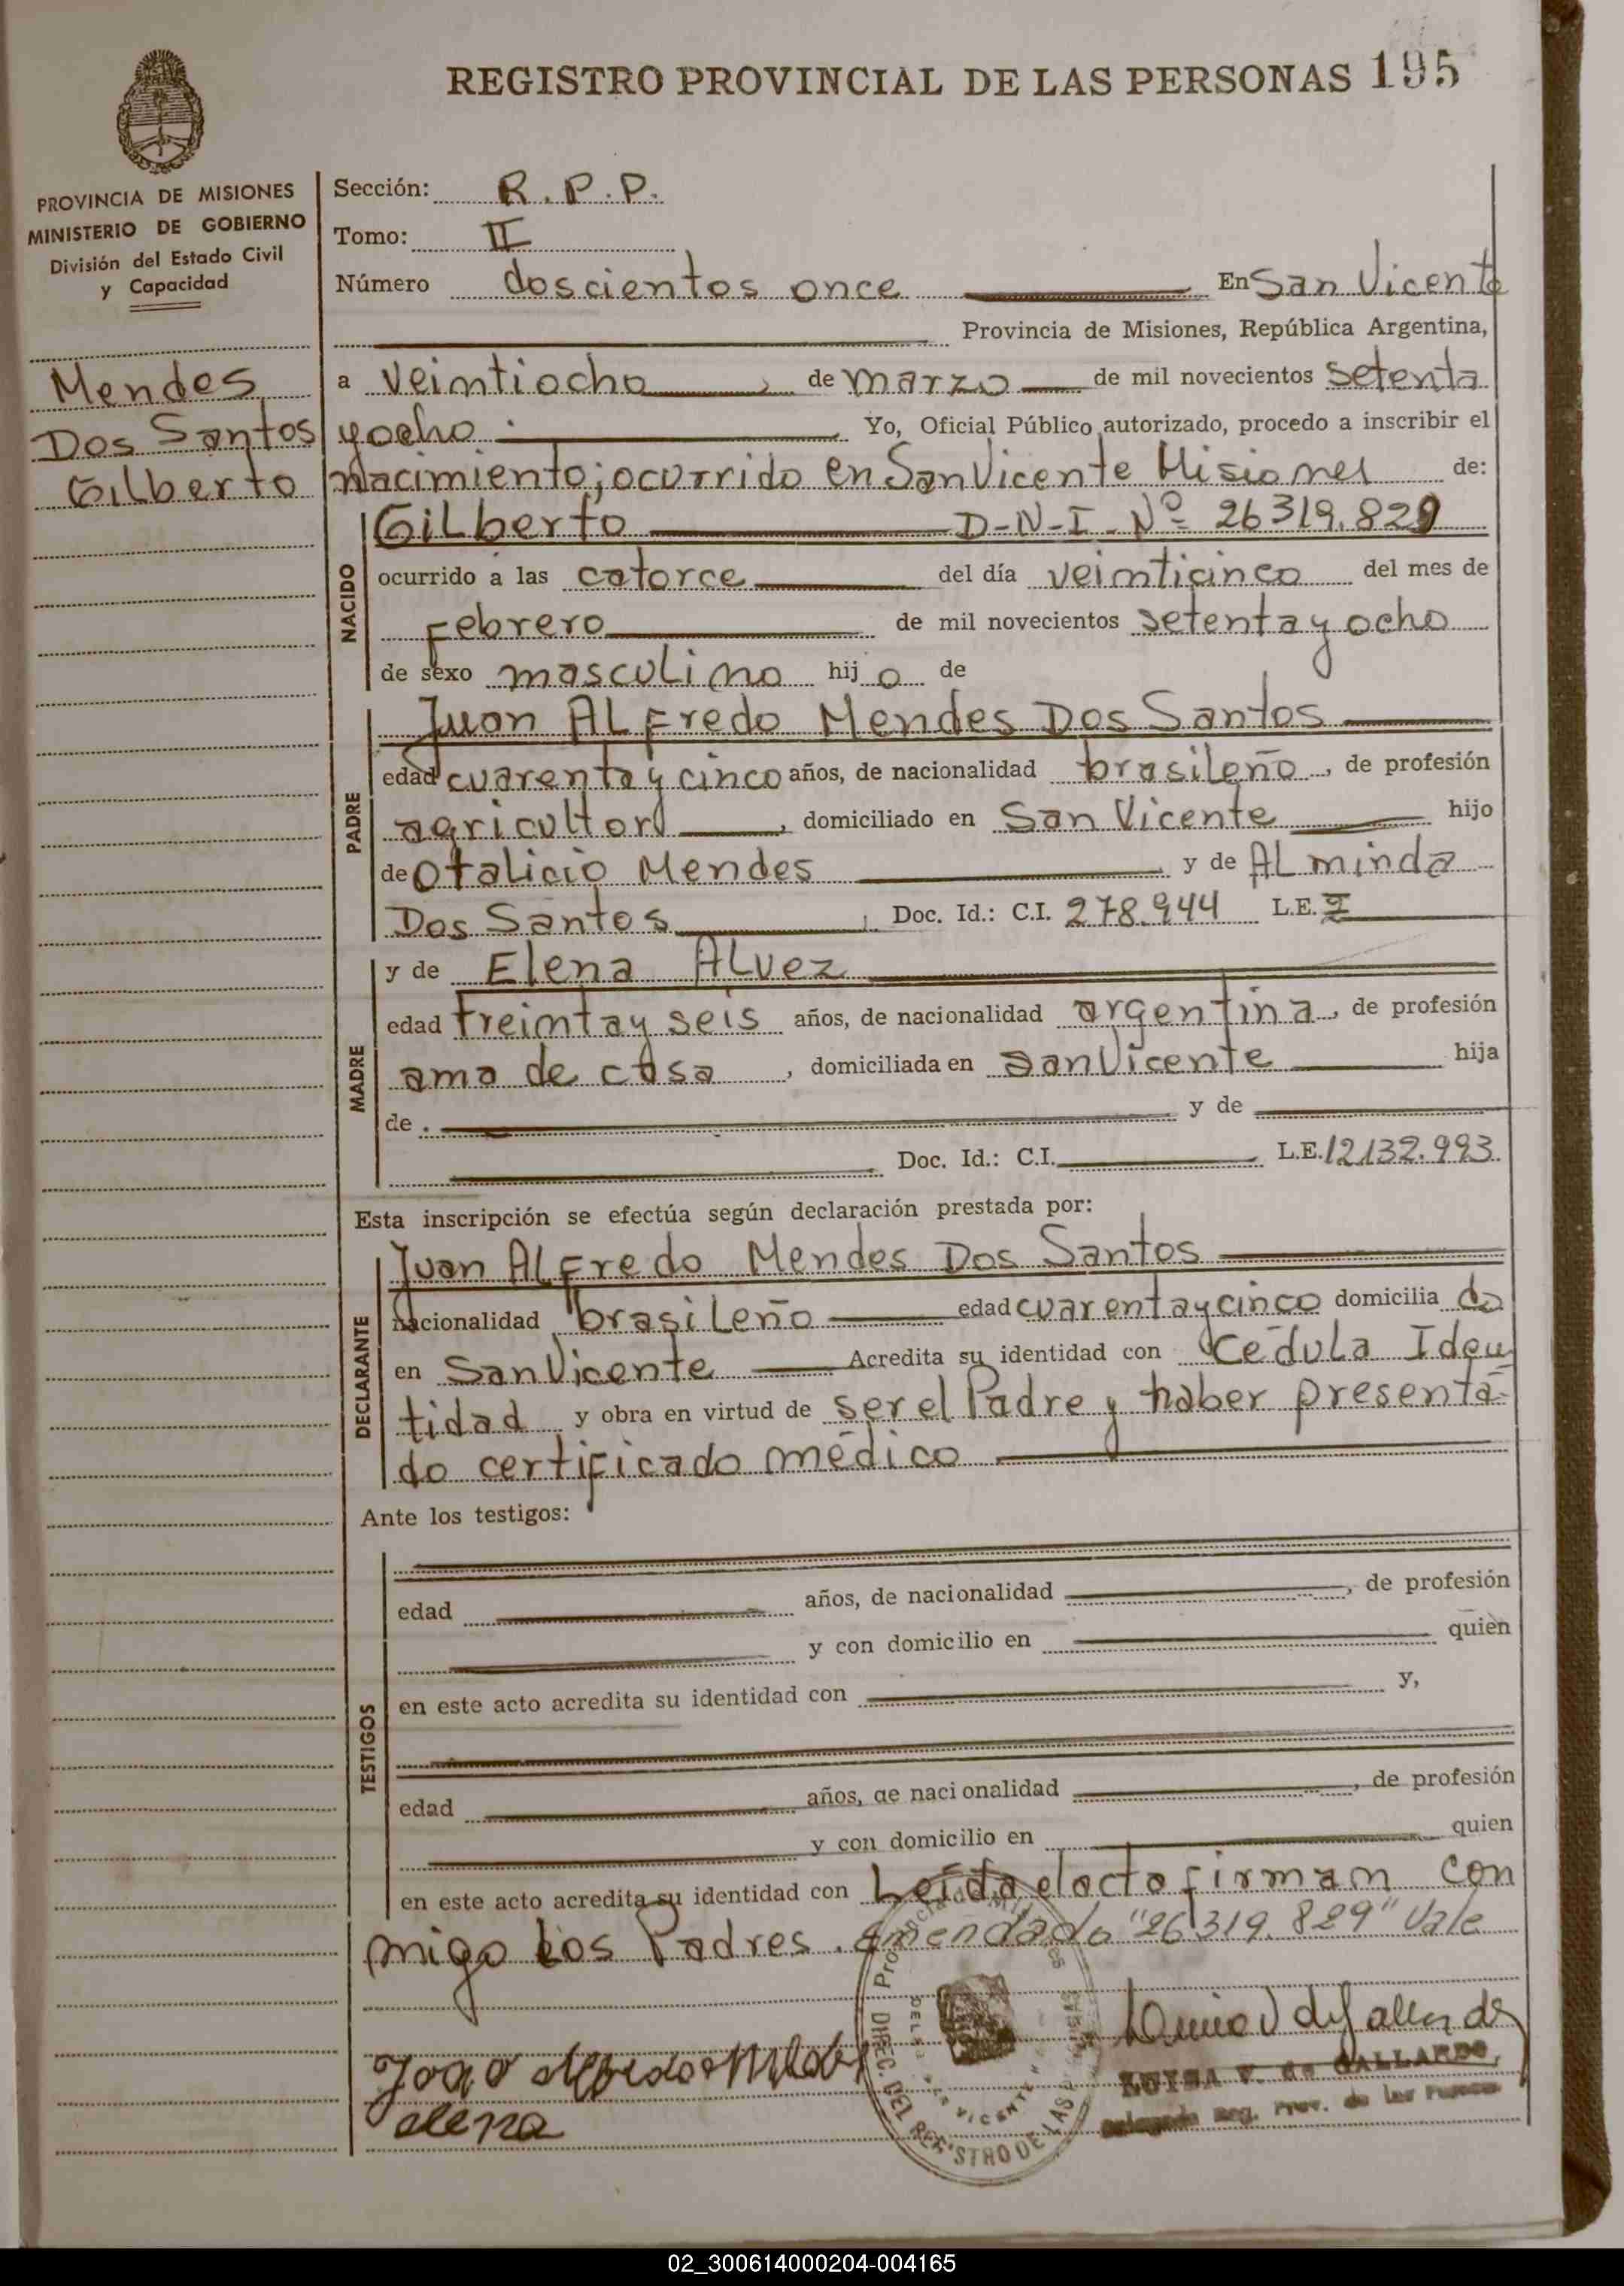 REGISTRO PROVINCIAL DE LAS PERSONAS 195
PROVINCIA DE MISIONES
MINISTERIO DE GOBIERNO
División del Estado Civil
y Capacidad
Mendes
Dos Santos
Gilberto
Sección: R.P.P.
Tomo: II
Número doscientos once En San Vicente
Provincia de Misiones, República Argentina,
a veintiocho, de marzo de mil novecientos setenta
y ocho. Yo, Oficial Público autorizado, procedo a inscribir el
nacimiento; ocurrido en San Vicente Misiones de:
NACIDO
Gilberto D-N-I-Nº 26319.829
ocurrido a las catorce del día veinticinco del mes de
Febrero de mil novecientos setenta y ocho
de sexo masculino hijo de
PADRE
Juan Alfredo Mendes Dos Santos
edad cuarenta y cinco años, de nacionalidad brasileño, de profesión
agricultor, domiciliado en San Vicente hijo
de Otalicio Mendes y de Alminda
Dos Santos, Doc. Id.: C.I. 278.944 L.E.
MADRE
y de Elena Alvez
edad treinta y seis años, de nacionalidad argentina, de profesión
ama de casa, domiciliada en San Vicente hija
de . y de
Doc. Id.: C.I. L.E. 12.132.993.
Esta inscripción se efectúa según declaración prestada por:
DECLARANTE
Juan Alfredo Mendes Dos Santos
nacionalidad brasileño edad cuarenta y cinco domiciliado
en San Vicente Acredita su identidad con Cédula Iden
tidad y obra en virtud de ser el Padre y haber presenta-
do certificado médico
Ante los testigos:
TESTIGOS
edad años, de nacionalidad , de profesión
y con domicilio en quien
en este acto acredita su identidad con y,
edad años, de nacionalidad , de profesión
y con domicilio en quien
en este acto acredita su identidad con Leída el acta firman con
migo los Padres. Enmendado "26.319.829" Vale
elena
LUISA V. de GALLARDO
Delegada Reg. Prov. de las Personas
DIREC. DEL REGISTRO DE LAS
02_300614000204-004165